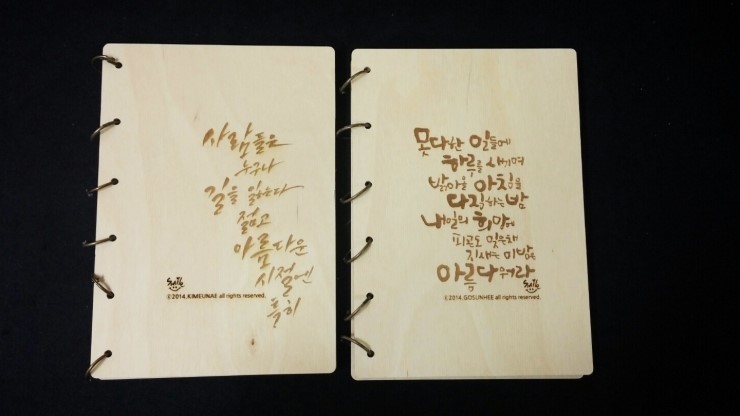 사람들은
누구나
길을 잃는다
젊고
아름다운
시절엔
특히
ⓒ2014, KIMEUNAE all rights reserved.
못다한 일들에
하루를 새기며
밝아올 아침을
다짐하는 밤
내일의 희망에
피곤도 잊은채
지새는 이밤은
아름다워라
ⓒ2014, GOSUNHEE all rights reserved.